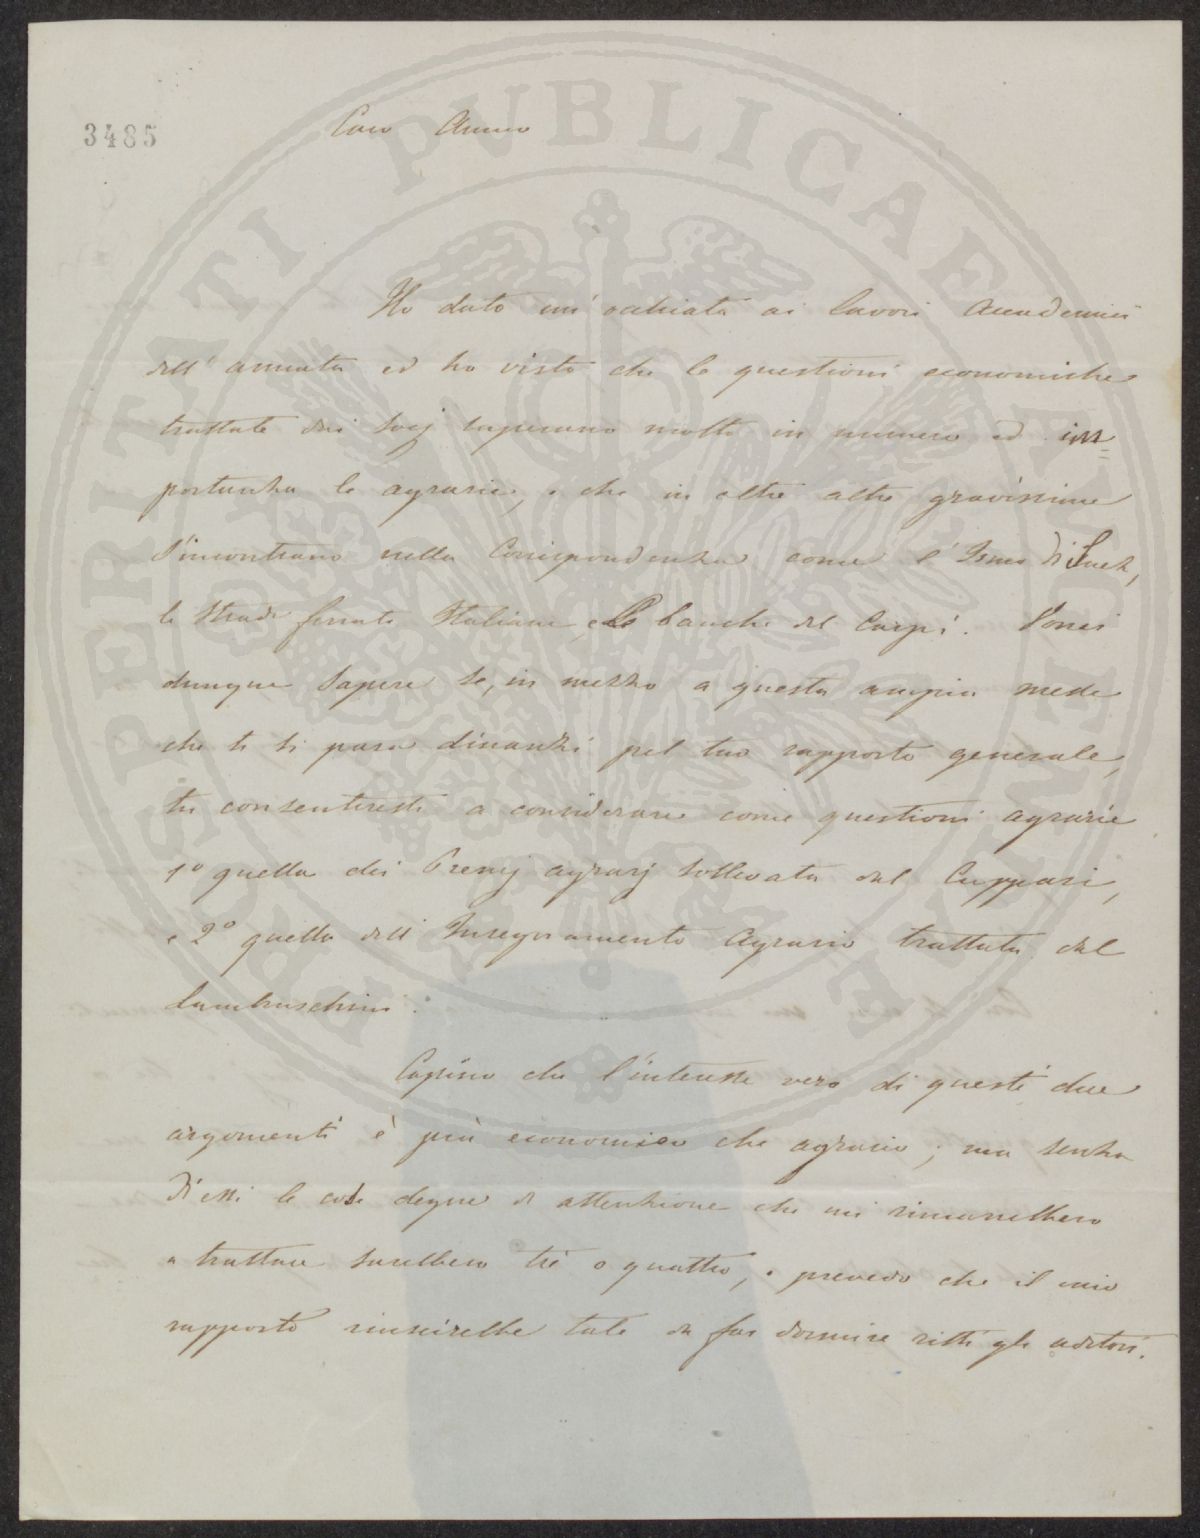 3485
Caro Amico
Ho dato un'occhiata ai lavori Accademici
dell'annata ed ho visto che le questioni economiche
trattate dai Socj superano molto in numero ed im=
portanza le agrarie, e che in oltre altre gravissime
s'incontrano nella Corrispondenza come l'Ismo di Suez,
le strade ferrate Italiane, e le banche del Carpi. Vorrei
dunque sapere se, in mezzo a questa ampia messe
che ti si para dinanzi pel tuo rapporto generale,
tu consentiresti a considerare come questioni agrarie
1º quella dei Premj agrarj sollevata dal Cuppari,
e 2º quella dell'Insegnamento Agrario trattata dal
Lambruschini.
Capisco che l'interesse vero di questi due
argomenti è più economico che agrario; ma senza
di essi le cose degne di attenzione che mi rimarrebbero
a trattare sarebbero tre o quattro, e prevedo che il mio
rapporto riuscirebbe tale da far dormire ritti gli uditori.
PROSPERITATI PUBLICAE AUGENDAE